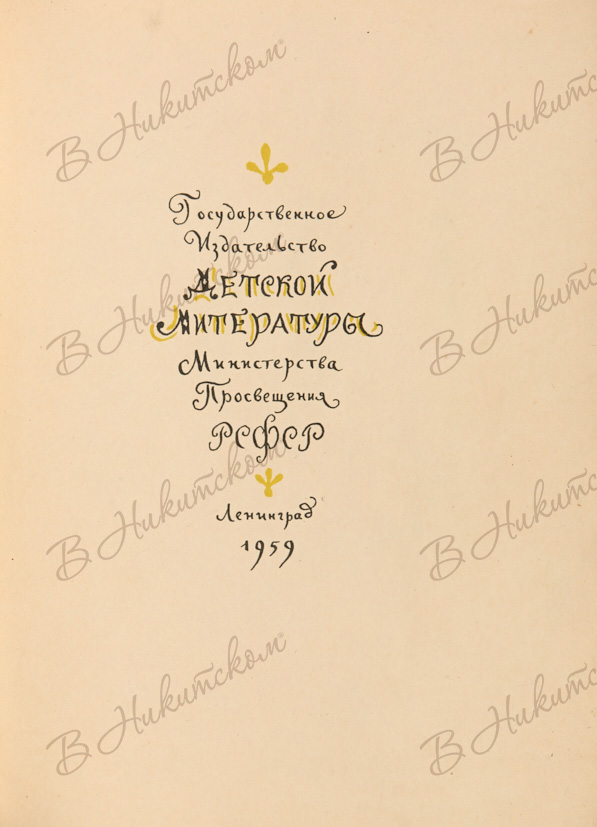 Государственное
Издательство
Детской
Литературы
Министерства
Просвещения
РСФСР
Ленинград
1959
В Никитском
В Никитском
В Никитском
В Никитском
В Никитском
В Никитском
В Никитском
В Никитском